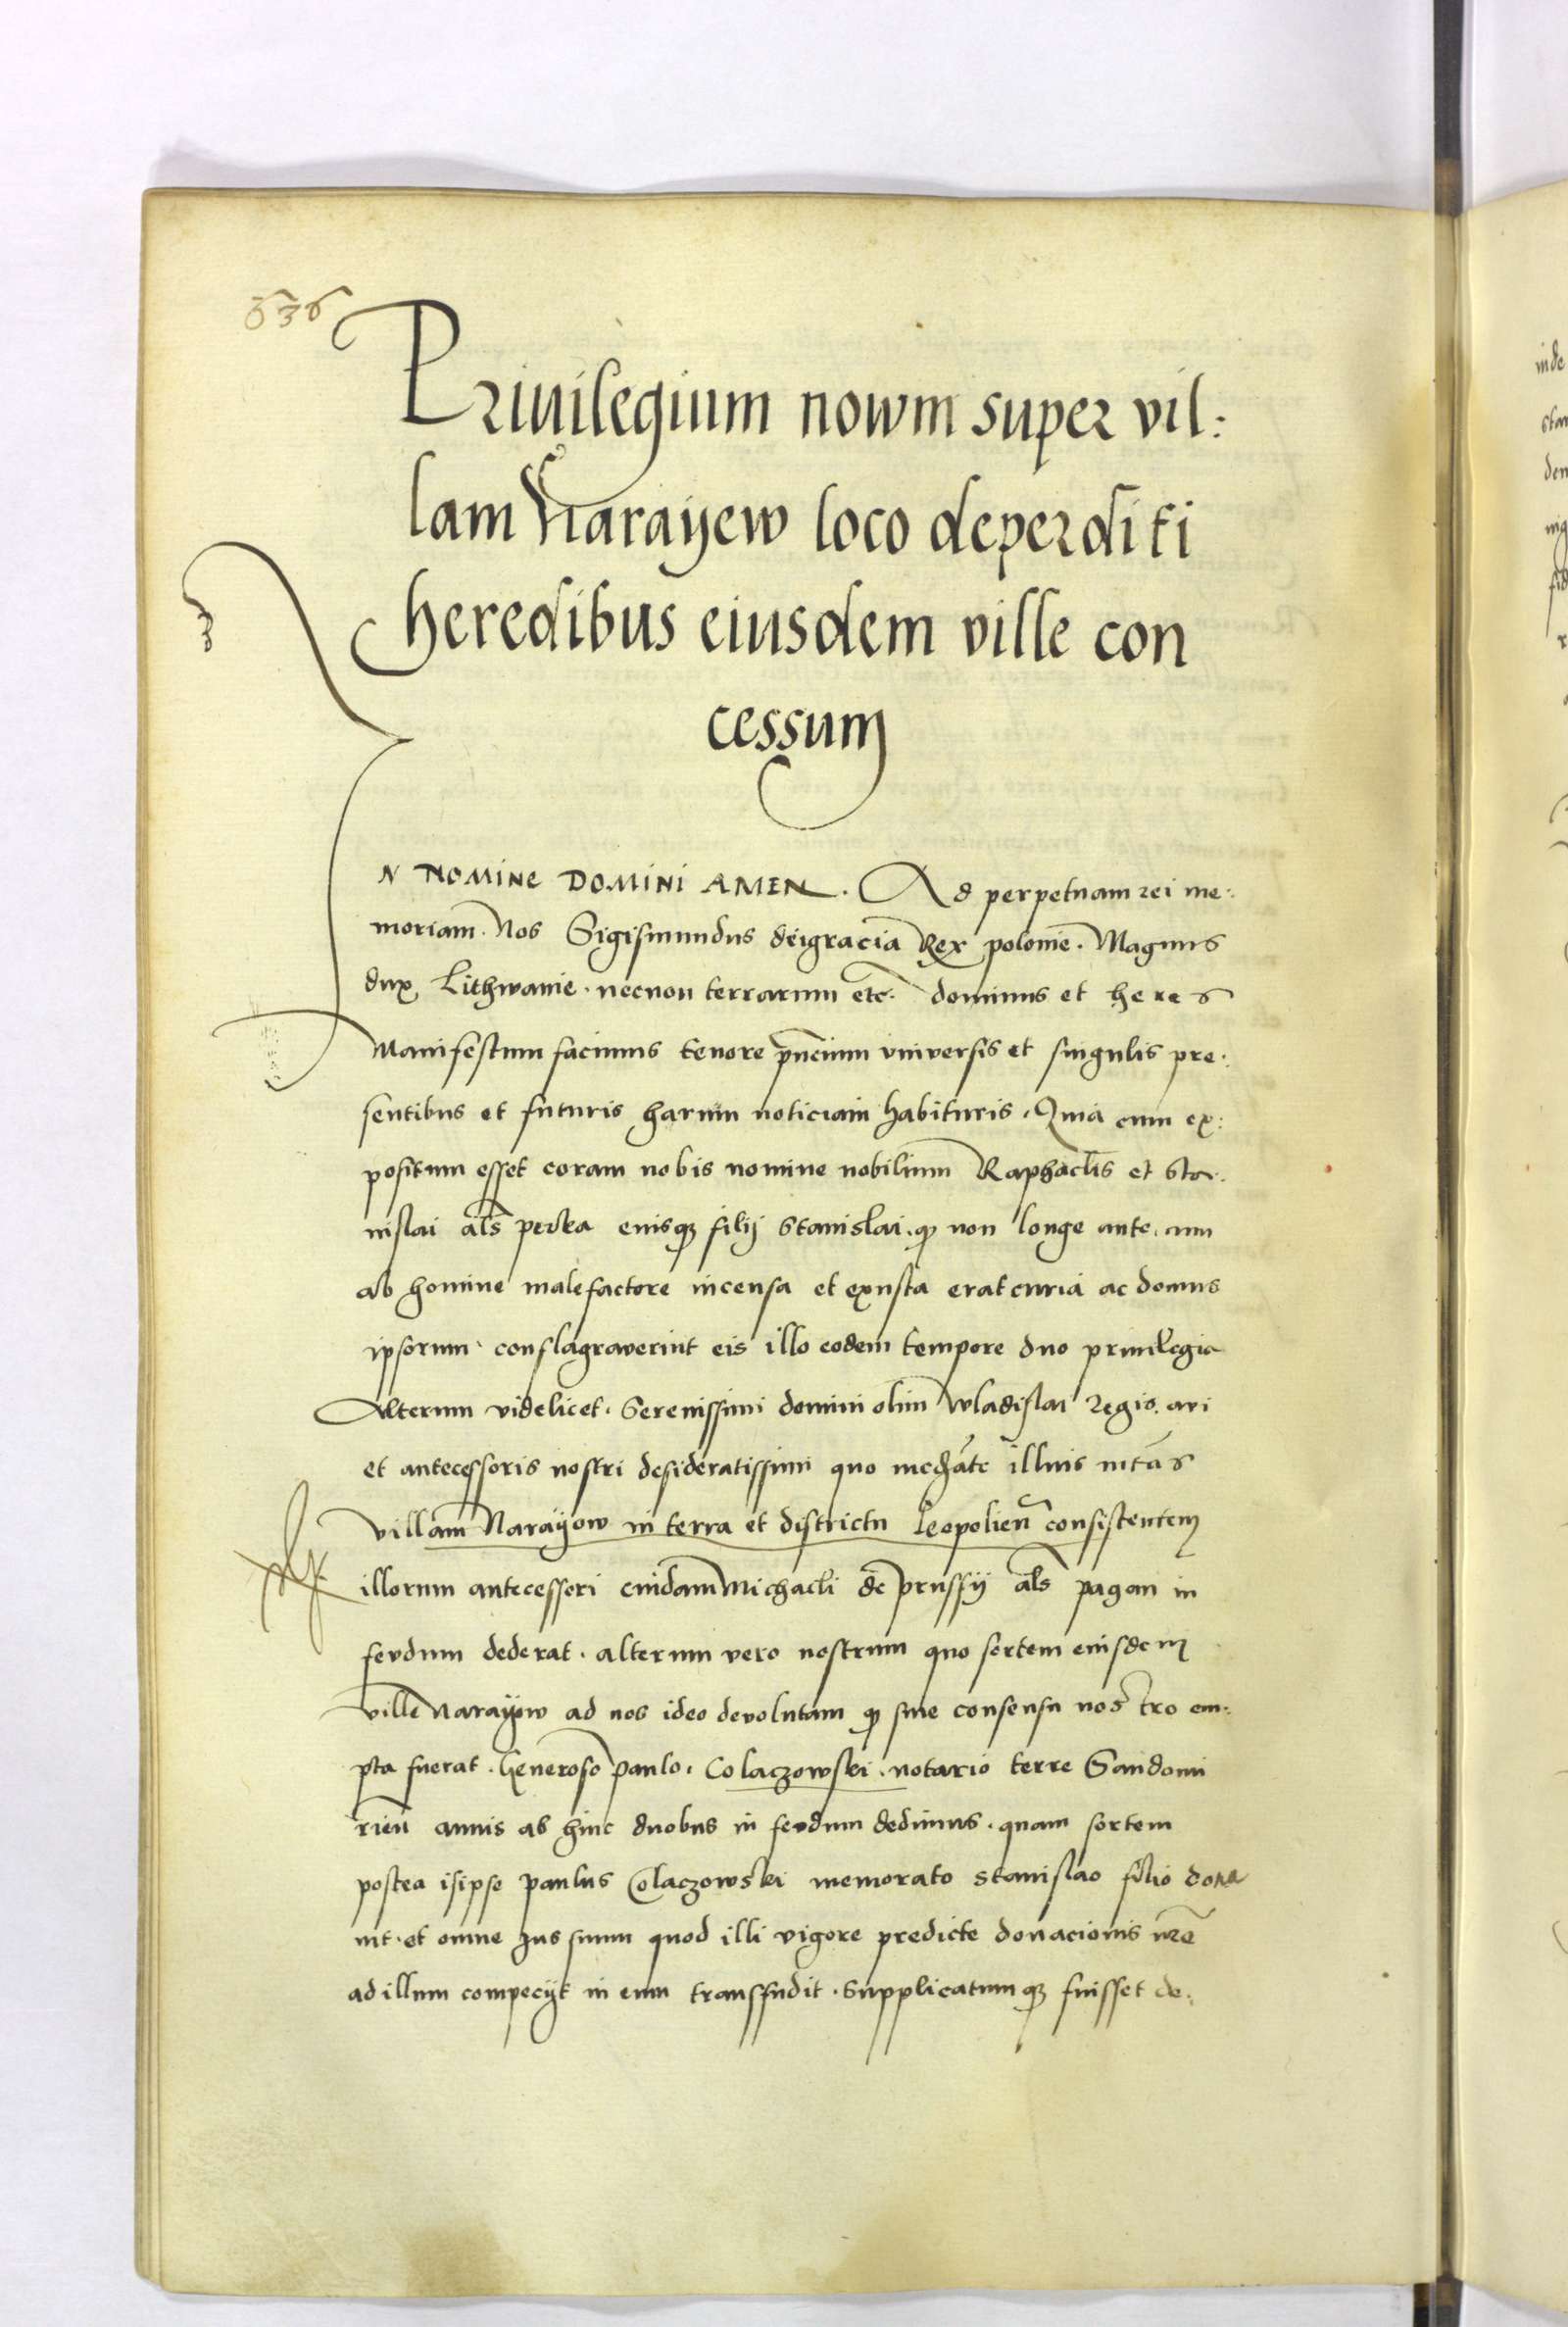 636
Privilegium nowm super vil:
lam Narayew loco deperditi
heredibus eiusdem ville con
cessum
IN NOMINE DOMINI AMEN. Ad perpetuam rei me:
moriam. Nos Sigismundus deigracia Rex polonie. Magnus
dux Lithwanie. necnon terrarum etc. dominus et heres
Manifestum facimus tenore pñcium vniversis et singulis pre:
sentibus et futuris harum noticiam habituris. Quia cum ex:
positum esset coram nobis nomine nobilium Raphaelis et Sta:
nislai als eiusqȝ filij Stanislai. qȝ non longe ante. cum
ab homine malefactore incensa et exusta erat curia ac domus
ipsorum. conflagraverint eis illo eodem tempore duo privilegia
Alterum videlicet. Serenissimi domini olim Wladislai Regis. avi
et antecessoris nostri desideratissimi quo
villam Narayow in terra et districtu Leopolien̄ consistentem
illorum antecessori cuidam Michaeli de prussij als pagan in
feudum dederat. alterum vero nostrum quo sortem eiusdem
ville Narayow ad nos ideo devolutam qȝ sine consensu nostro em:
pta fuerat. Generoso Paulo. Colaczowski. notario terre Sandomi
rien̄ annis ab hinc duobus in feudum dedimus. quam sortem
postea isipse paulus Colaczowski memorato Stanislao filio dona
uit. et omne Jus suum quod illi vigore predicte donacionis nr̄e
ad illum compecijt in eum transfudit. Supplicatumqȝ fuisset de: